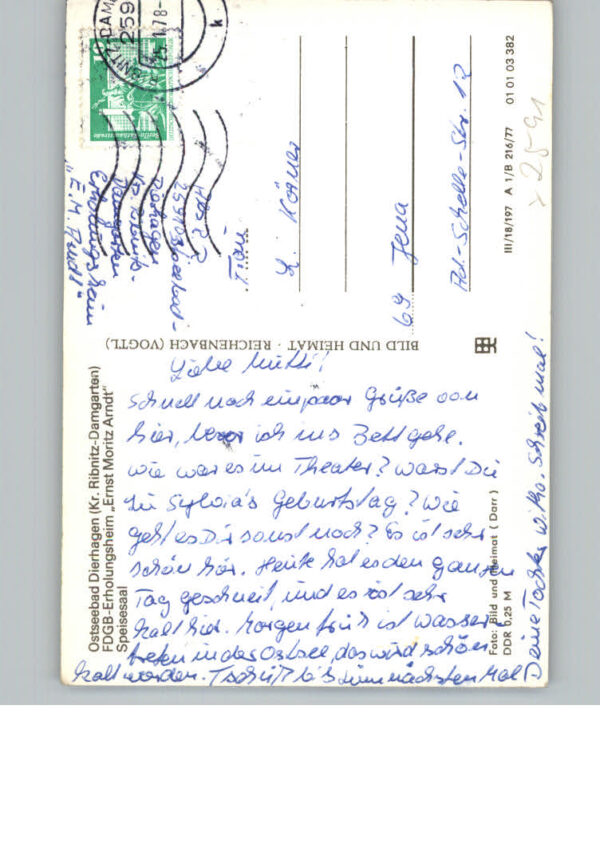 Ostseebad Dierhagen (Kr. Ribnitz-Damgarten)
FDGB-Erholungsheim „Ernst Moritz Arndt"
Speisesaal
Liebe Mutti!
Schnell noch ein paar Grüße von
hier, bevor ich ins Bett gehe.
Wie war es im Theater? Warst Du
zu Sylvia's Geburtstag? Wie
geht es Dir sonst noch? Es ist sehr
schön hier. Heute hat es den ganzen
Tag geschneit, und es ist sehr
kalt hier. Morgen früh ist Wasser
treten in der Ostsee, das wird schön
kalt werden. Tschüß bis zum nächsten Mal
Deine Tochter Schreib mal!
Foto: Bild und Heimat (Darr)
DDR 0,25 M
BILD UND HEIMAT · REICHENBACH (VOGTL)
III/18/197 A 1/B 216/77 01 01 03 382
2591
259
78-
k
10
DDR
2591 Ostseebad-
Dierhagen
Kr. Ribnitz-
Damgarten
Erholungsheim
"E. M. Arndt"
Frau
L. Körner
69 Jena